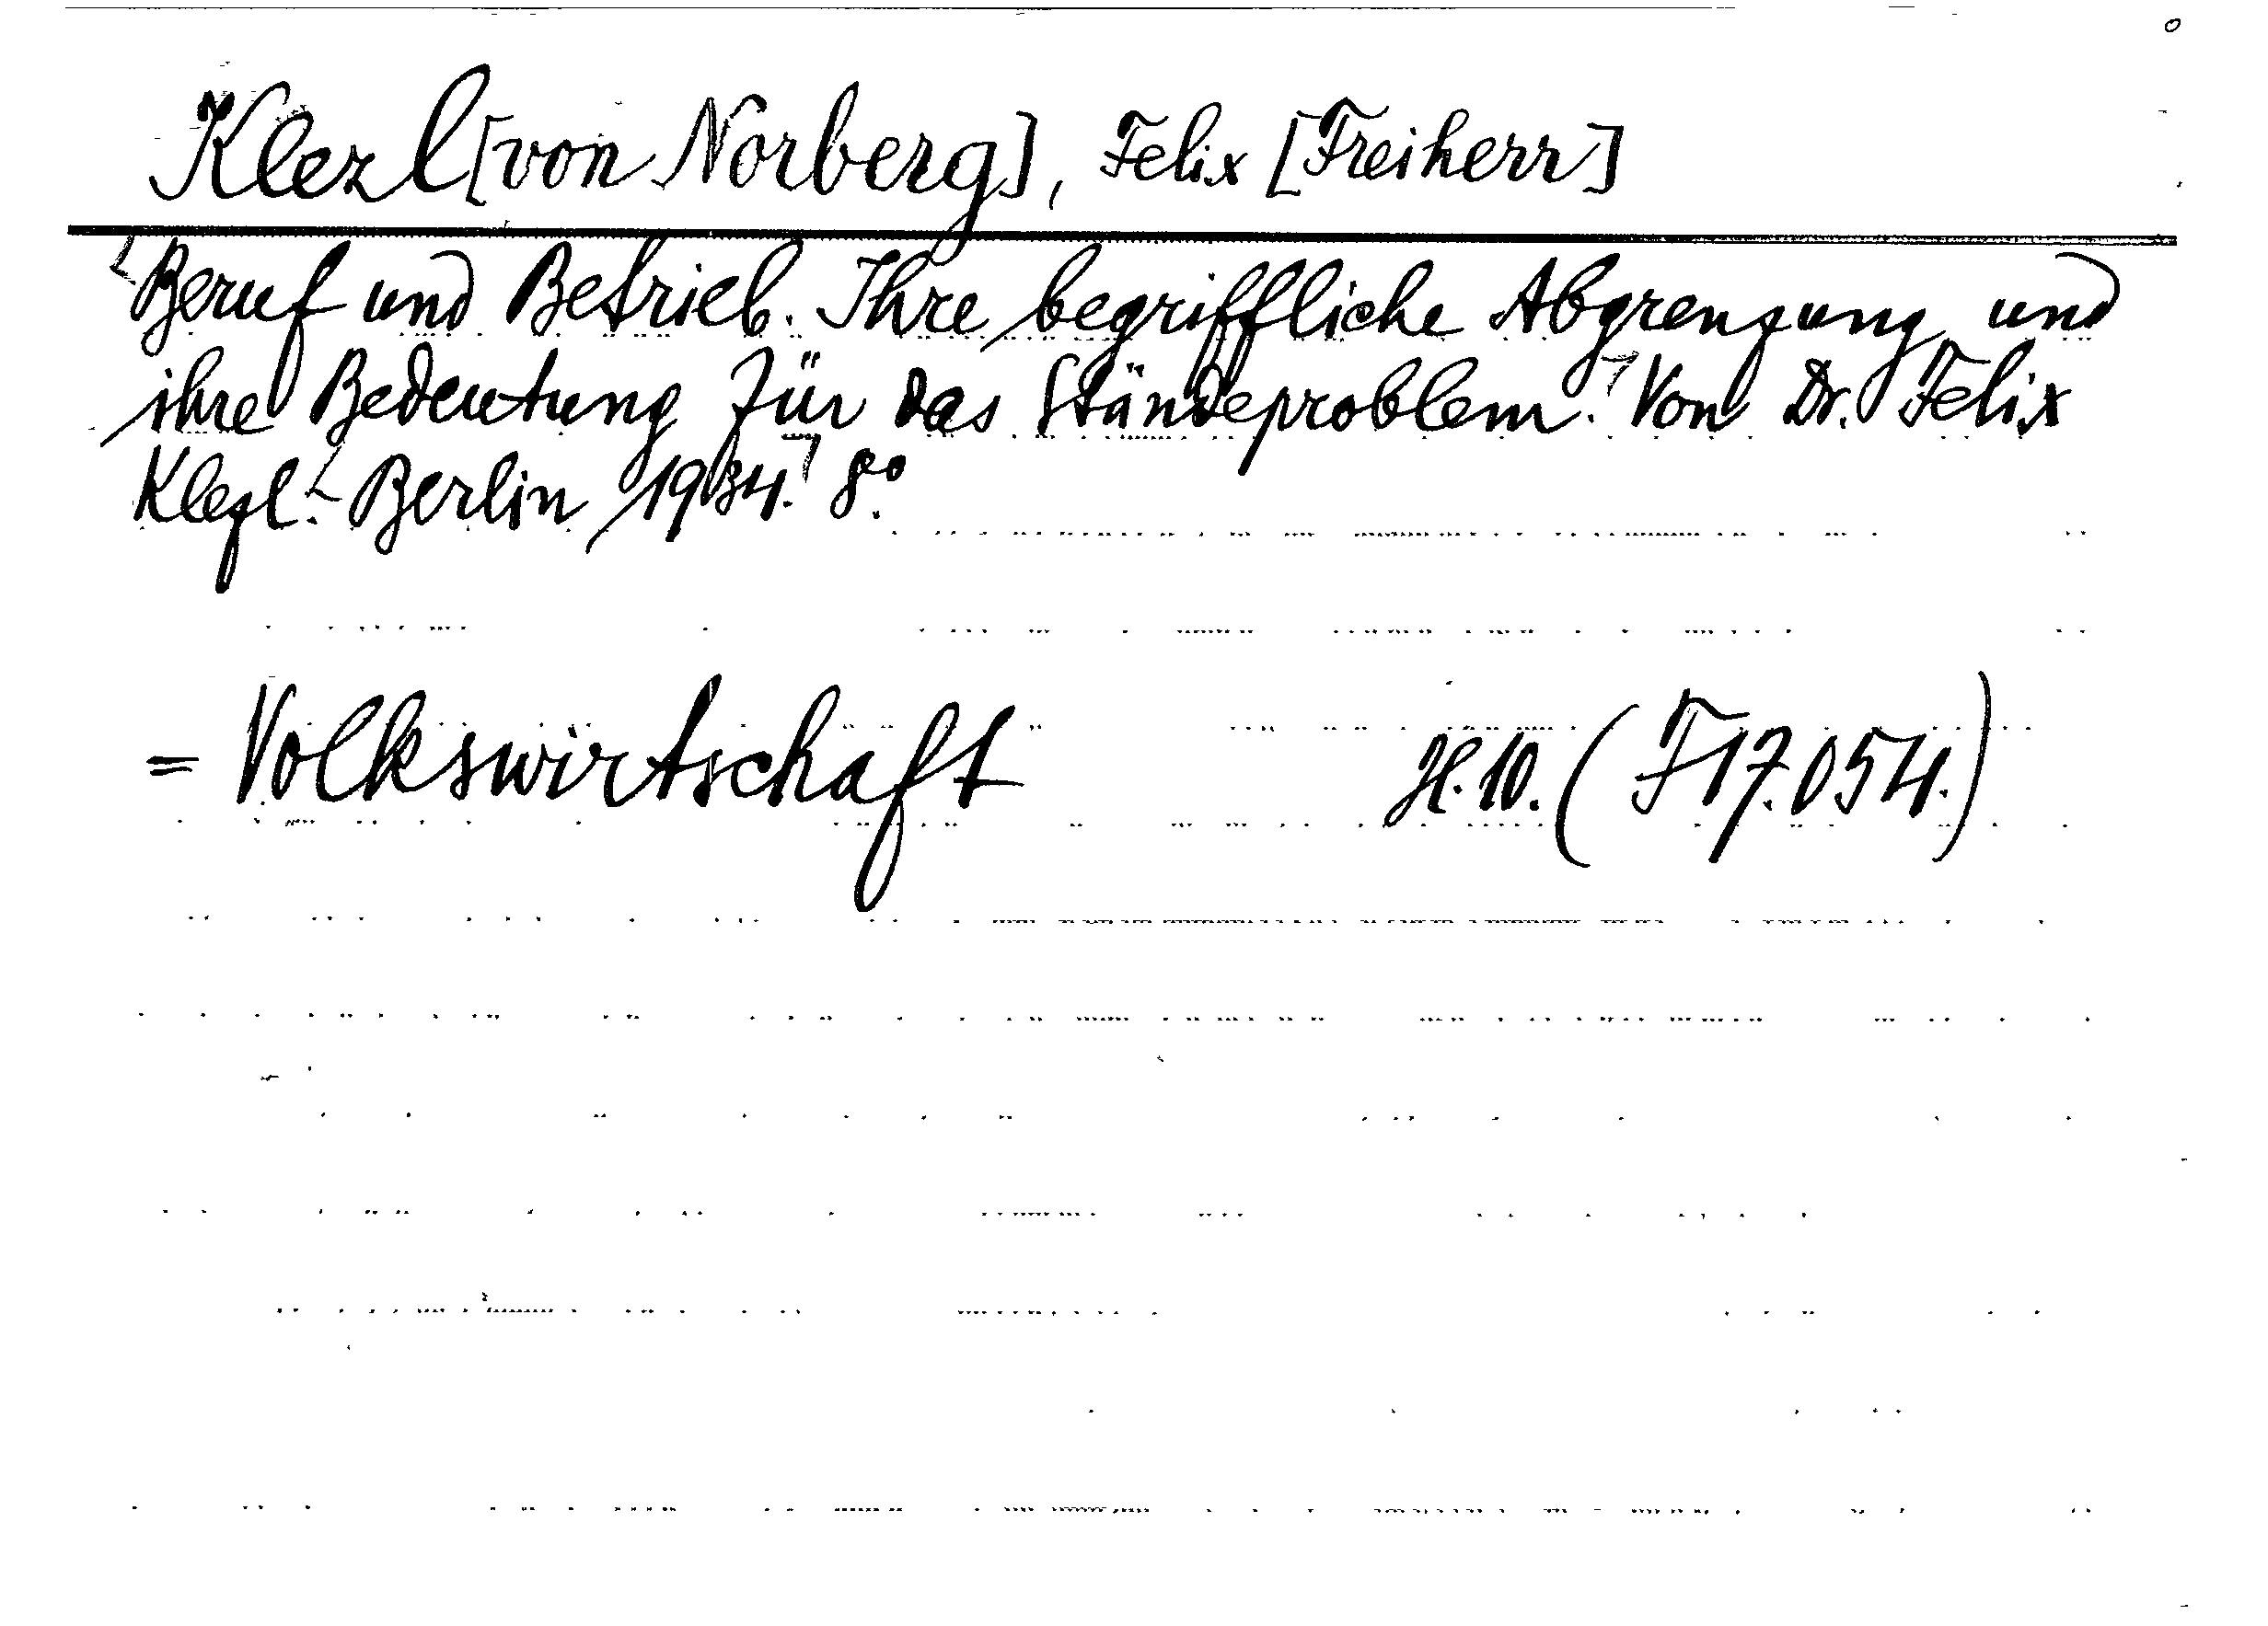 Klezl [von Norberg], Felix [Freiherr]
Beruf und Betrieb. Ihre begriffliche Abgrenzung und
ihre Bedeutung für das Ständeproblem. Von Dr. Felix
Klezl. - Berlin 1934. 8°.
= Volkswirtschaft H. 10. (F 17.054.)